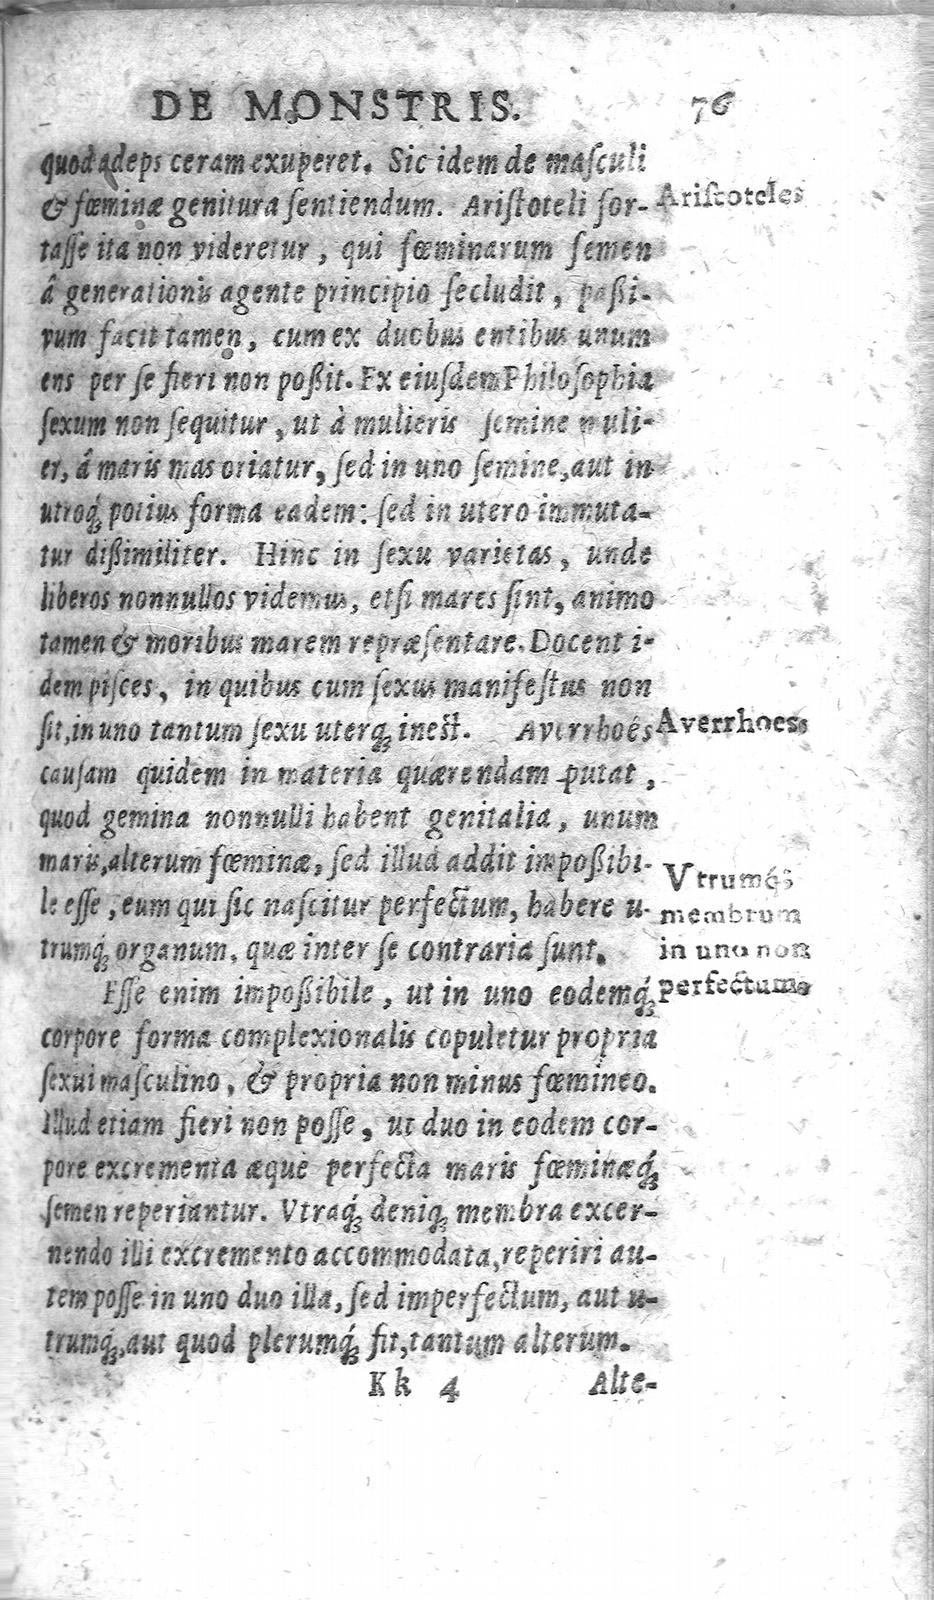 DE MONSTRIS. 76
quod adeps ceram exuperet. Sic idem de maſculi
& fœminæ genitura ſentiendum. Ariſtoteli for-
Ariſtoteles
taſſe ita non videretur, qui fœminarum ſemen
â generationis agente principio ſecludit, paßi-
vum facit tamen, cum ex duobus entibus unum
ens per ſe fieri non poßit. Ex eiuſdem Philoſophia
ſexum non ſequitur, ut à mulieris ſemine muli-
er, â maris mas oriatur, ſed in uno ſemine, aut in
utroq́ꝫ potius forma eadem: ſed in utero immuta-
tur dißimiliter. Hinc in ſexu varietas, unde
liberos nonnullos videmus, etſi mares ſint, animo
tamen & moribus marem repræſentare. Docent i-
dem piſces, in quibus cum ſexus manifeſtus non
ſit, in uno tantum ſexu uterqꝫ ineſt. Averrhoês
Averrhoes
cauſam quidem in materia quærendam putat,
quod gemina nonnulli habent genitalia, unum
maris, alterum fœminæ, ſed illud addit impoßibi-
le eſſe, eum qui ſic naſcitur perfectum, habere u-
trumq́ꝫ organum, quæ inter ſe contraria ſunt.
Vtrumq́ꝫ
membrum
in uno non
perfectum
Eſſe enim impoßibile, ut in uno eodemq́ꝫ
corpore forma complexionalis copuletur propria
ſexui maſculino, & propria non minus fœmineo.
Illud etiam fieri non poſſe, ut duo in eodem cor-
pore excrementa æquè perfecta maris fœminæq́ꝫ
ſemen reperiantur. Vtraq́ꝫ deniqꝫ membra excer-
nendo illi excremento accommodata, reperiri au-
tem poſſe in uno duo illa, ſed imperfectum, aut u-
trumq́ꝫ, aut quod plerumq́ꝫ fit, tantum alterum.
Kk 4 Alte-